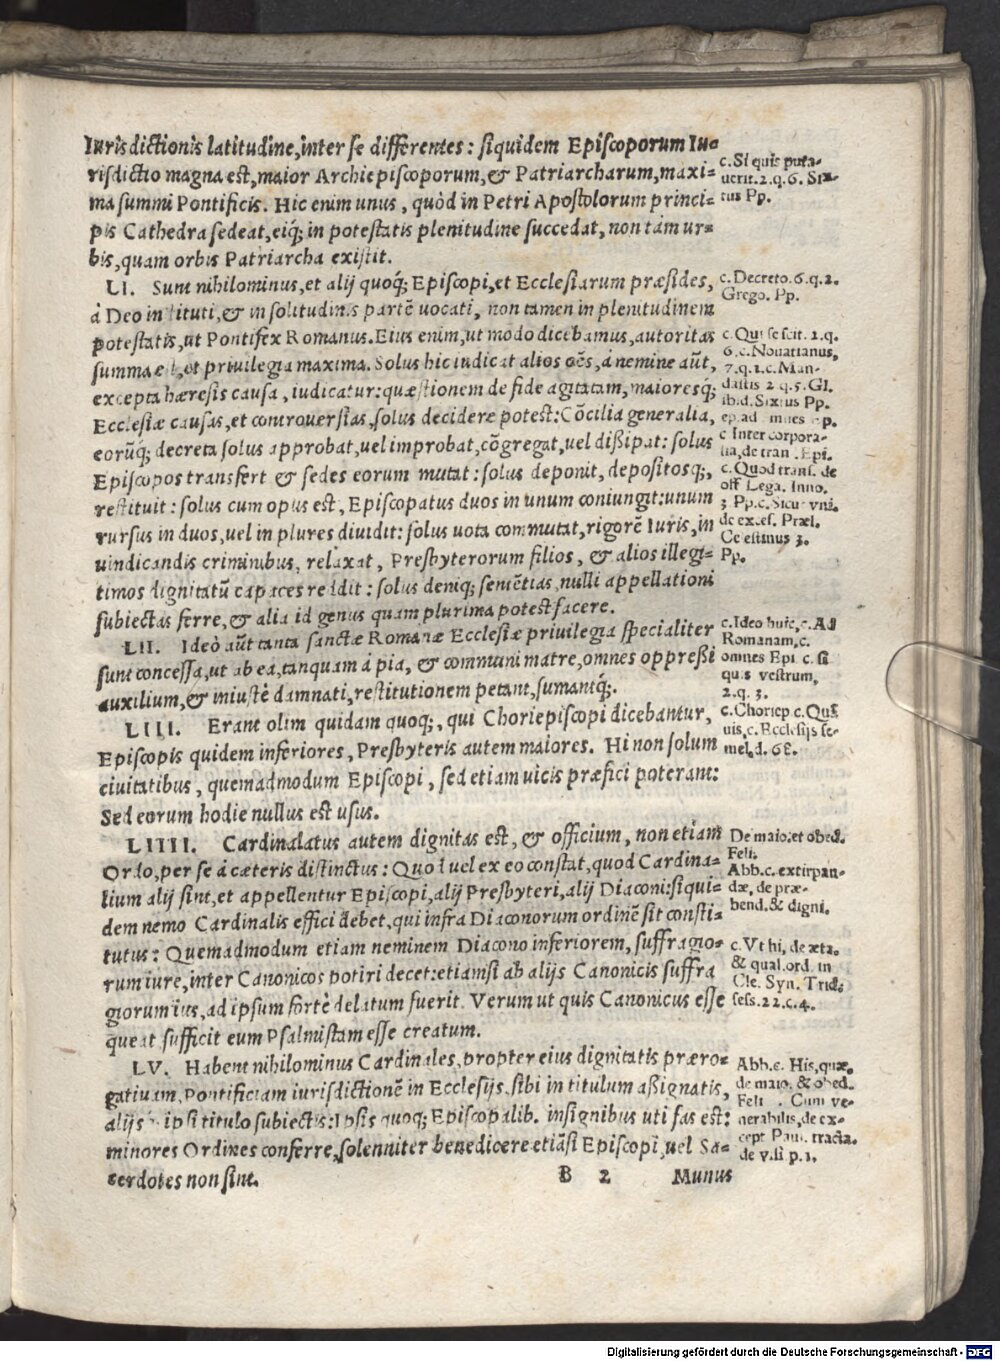 Iurisdictionis latitudine, inter se differentes: siquidem Episcoporum Iu=
risdictio magna est, maior Archiepiscoporum, & Patriarcharum, maxi=
ma summi Pontificis. Hic enim unus, quòd in Petri Apostolorum princi=
pis Cathedra sedeat, eiq́; in potestatis plenitudine succedat, non tàm ur=
bis, quam orbis Patriarcha existit.
LI. Sunt nihilominus, et alij quoq́; Episcopi, et Ecclesiarum præsides,
à Deo instituti, & in solitudinis partē uocati, non tamen in plenitudinem
potestatis, ut Pontifex Romanus. Eius enim, ut modo dicebamus, autoritas
summa est, et priuilegia maxima. Solus hic iudicat alios oēs, à nemine aūt,
excepta hæresis causa, iudicatur: quæstionem de fide agitatam, maioresq́;
Ecclesiæ causas, et controuersias, solus decidere potest: Cōcilia generalia,
eorūq́; decreta solus approbat, uel improbat, cōgregat, uel dißipat: solus
Episcopos transfert & sedes eorum mutat: solus deponit, depositosq́;,
restituit: solus cum opus est, Episcopatus duos in unum coniungit: unum
rursus in duos, uel in plures diuidit: solus uota commutat, rigorē Iuris, in
uindicandis criminibus, relaxat, Presbyterorum filios, & alios illegi=
timos dignitatū capaces reddit: solus deniq; sentētias, nulli appellationi
subiectas ferre, & alia id genus quam plurima potest facere.
LII. Ideò aūt tanta sanctæ Romanæ Ecclesiæ priuilegia specialiter
sunt concessa, ut ab ea, tanquam à pia, & communi matre, omnes oppreßi
auxilium, & iniustè damnati, restitutionem petant, sumantq́;.
LIII. Erant olim quidam quoq;, qui Choriepiscopi dicebantur,
Episcopis quidem inferiores, Presbyteris autem maiores. Hi non solum
ciuitatibus, quemadmodum Episcopi, sed etiam uicis præfici poterant:
Sed eorum hodie nullus est usus.
LIIII. Cardinalatus autem dignitas est, & officium, non etiam
Ordo, per se à cæteris distinctus: Quod uel ex eo constat, quod Cardina=
lium alij sint, et appellentur Episcopi, alij Presbyteri, alij Diaconi: siqui=
dem nemo Cardinalis effici debet, qui infra Diaconorum ordinē sit consti=
tutus: Quemadmodum etiam neminem Diacono inferiorem, suffragio=
rum iure, inter Canonicos potiri decet: etiamsi ab alijs Canonicis suffra
giorum ius, ad ipsum fortè delatum fuerit. Verum ut quis Canonicus esse
queat sufficit eum Psalmistam esse creatum.
LV. Habent nihilominus Cardinales, propter eius dignitatis præro=
gatiuam, Pontificiam iurisdictionē in Ecclesijs, sibi in titulum aßignatis,
alijsq́; ipsi titulo subiectis: Ipsis quoq; Episcopalib. insignibus uti fas est:
minores Ordines conferre, solenniter benedicere etiāsi Episcopi, uel Sa=
cerdotes non sint.
B 2 Munus
c. Si quis puta-
uerit. 2. q. 6. Six-
tus Pp.
c. Decreto. 6. q. 2.
Grego. Pp.
c. Qui se scit. 2. q.
6. c. Nouatianus,
7. q. 1. c. Man-
dastis 2 q. 5. Gl.
ibid. Sixtus Pp.
c Inter corpora-
lia, de tran . Epi.
c. Quod trans. de
off Lega. Inno.
3 Pp. c. Sicut vni.
de exces. Præl.
Celestinus 3.
Pp.
c. Ideo huic, c. Ad
Romanam, c.
omnes Epi c. si
quis vestrum,
2. q. 3.
c. Choriep c. Quā
uis, c. Ecclesijs se-
mel, d. 68.
De maio. et obed.
Feli:
Abb. c. extirpan-
dæ, de præ-
bend. & digni.
c. Vt hi, de æta.
& qual. ord. in
Cle. Syn. Trid.
sess. 22. c. 4.
Abb. c. His, quæ,
de maio. & obed.
Feli . Cum ve-
nerabilis, de ex-
cept Pau. tracta.
de visi p. 1.
Digitalisierung gefördert durch die Deutsche Forschungsgemeinschaft - DFG